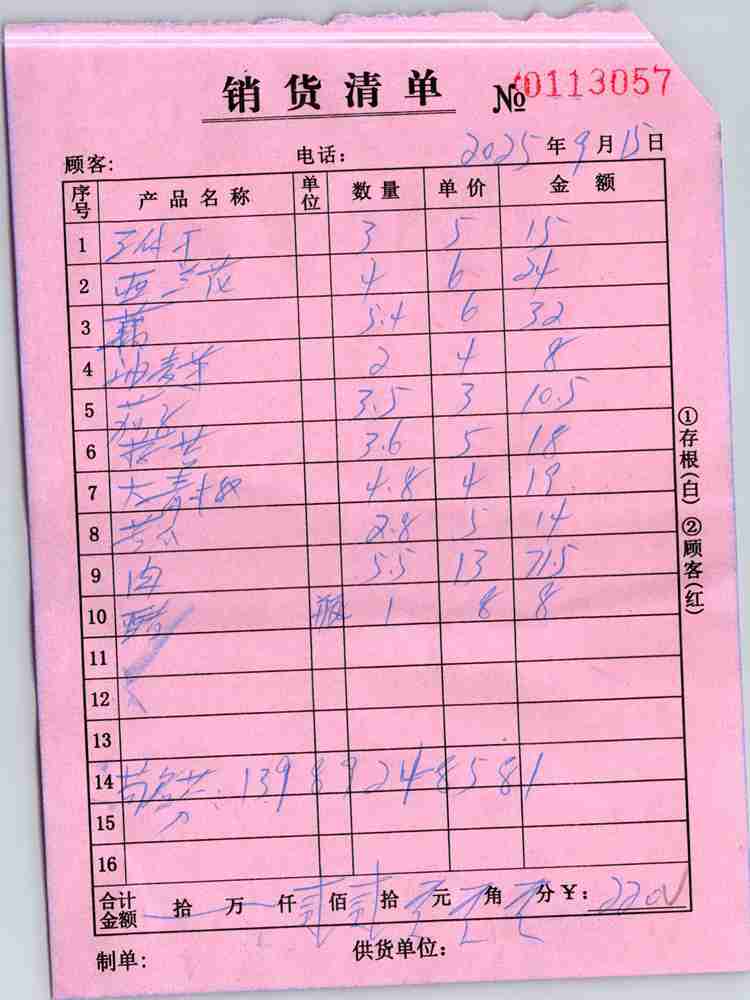 销货清单 № 0113057
顾客: 电话: 2025年9月15日
序号 产品名称 单位 数量 单价 金额
1 豆付干 3 5 15
2 西兰花 4 6 24
3 藕 5.4 6 32
4 油麦菜 2 4 8
5 茄子 3.5 3 10.5
6 3.6 5 18
7 4.8 4 19
8 苦瓜 2.8 5 14
9 肉 5.5 13 71.5
10 醋 瓶 1 8 8
11
12
13
14 13989248581
15
16
合计金额 拾 万 仟 贰 佰 贰 拾 零 元 零 角 零 分 ¥: 220
制单: 供货单位:
①存根(白) ②顾客(红)